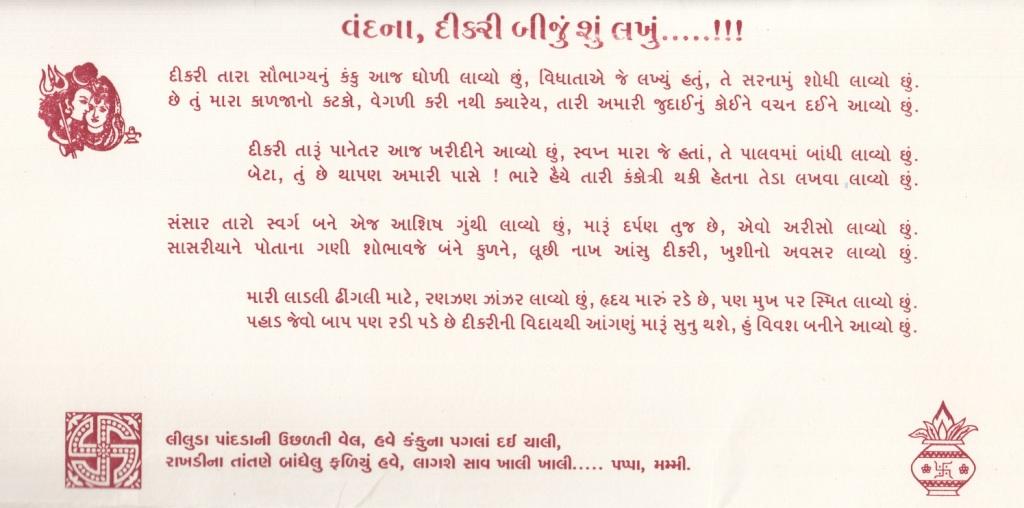 વંદના, દીકરી બીજું શું લખું.....!!!
દીકરી તારા સૌભાગ્યનું કંકુ આજ ઘોળી લાવ્યો છું, વિધાતાએ જે લખ્યું હતું, તે સરનામું શોધી લાવ્યો છું.
છે તું મારા કાળજાનો કટકો, વેગળી કરી નથી ક્યારેય, તારી અમારી જુદાઈનું કોઈને વચન દઈને આવ્યો છું.
દીકરી તારૂં પાનેતર આજ ખરીદીને આવ્યો છું, સ્વપ્ન મારા જે હતાં, તે પાલવમાં બાંધી લાવ્યો છું.
બેટા, તું છે થાપણ અમારી પાસે ! ભારે હૈયે તારી કંકોત્રી થકી હેતના તેડા લખવા લાવ્યો છું.
સંસાર તારો સ્વર્ગ બને એજ આશિષ ગુંથી લાવ્યો છું, મારૂં દર્પણ તુજ છે, એવો અરીસો લાવ્યો છું.
સાસરીયાને પોતાના ગણી શોભાવજે બંને કુળને, લૂછી નાખ આંસુ દીકરી, ખુશીનો અવસર લાવ્યો છું.
મારી લાડલી ઢીંગલી માટે, રણઝણ ઝાંઝર લાવ્યો છું, હૃદય મારું રડે છે, પણ મુખ પર સ્મિત લાવ્યો છું.
પહાડ જેવો બાપ પણ રડી પડે છે દીકરીની વિદાયથી આંગણું મારૂં સુનુ થશે, હું વિવશ બનીને આવ્યો છું.
લીલુડા પાંદડાની ઉછળતી વેલ, હવે કંકુના પગલાં દઈ ચાલી,
રાખડીના તાંતણે બાંધેલુ ફળિયું હવે, લાગશે સાવ ખાલી ખાલી..... પપ્પા, મમ્મી.